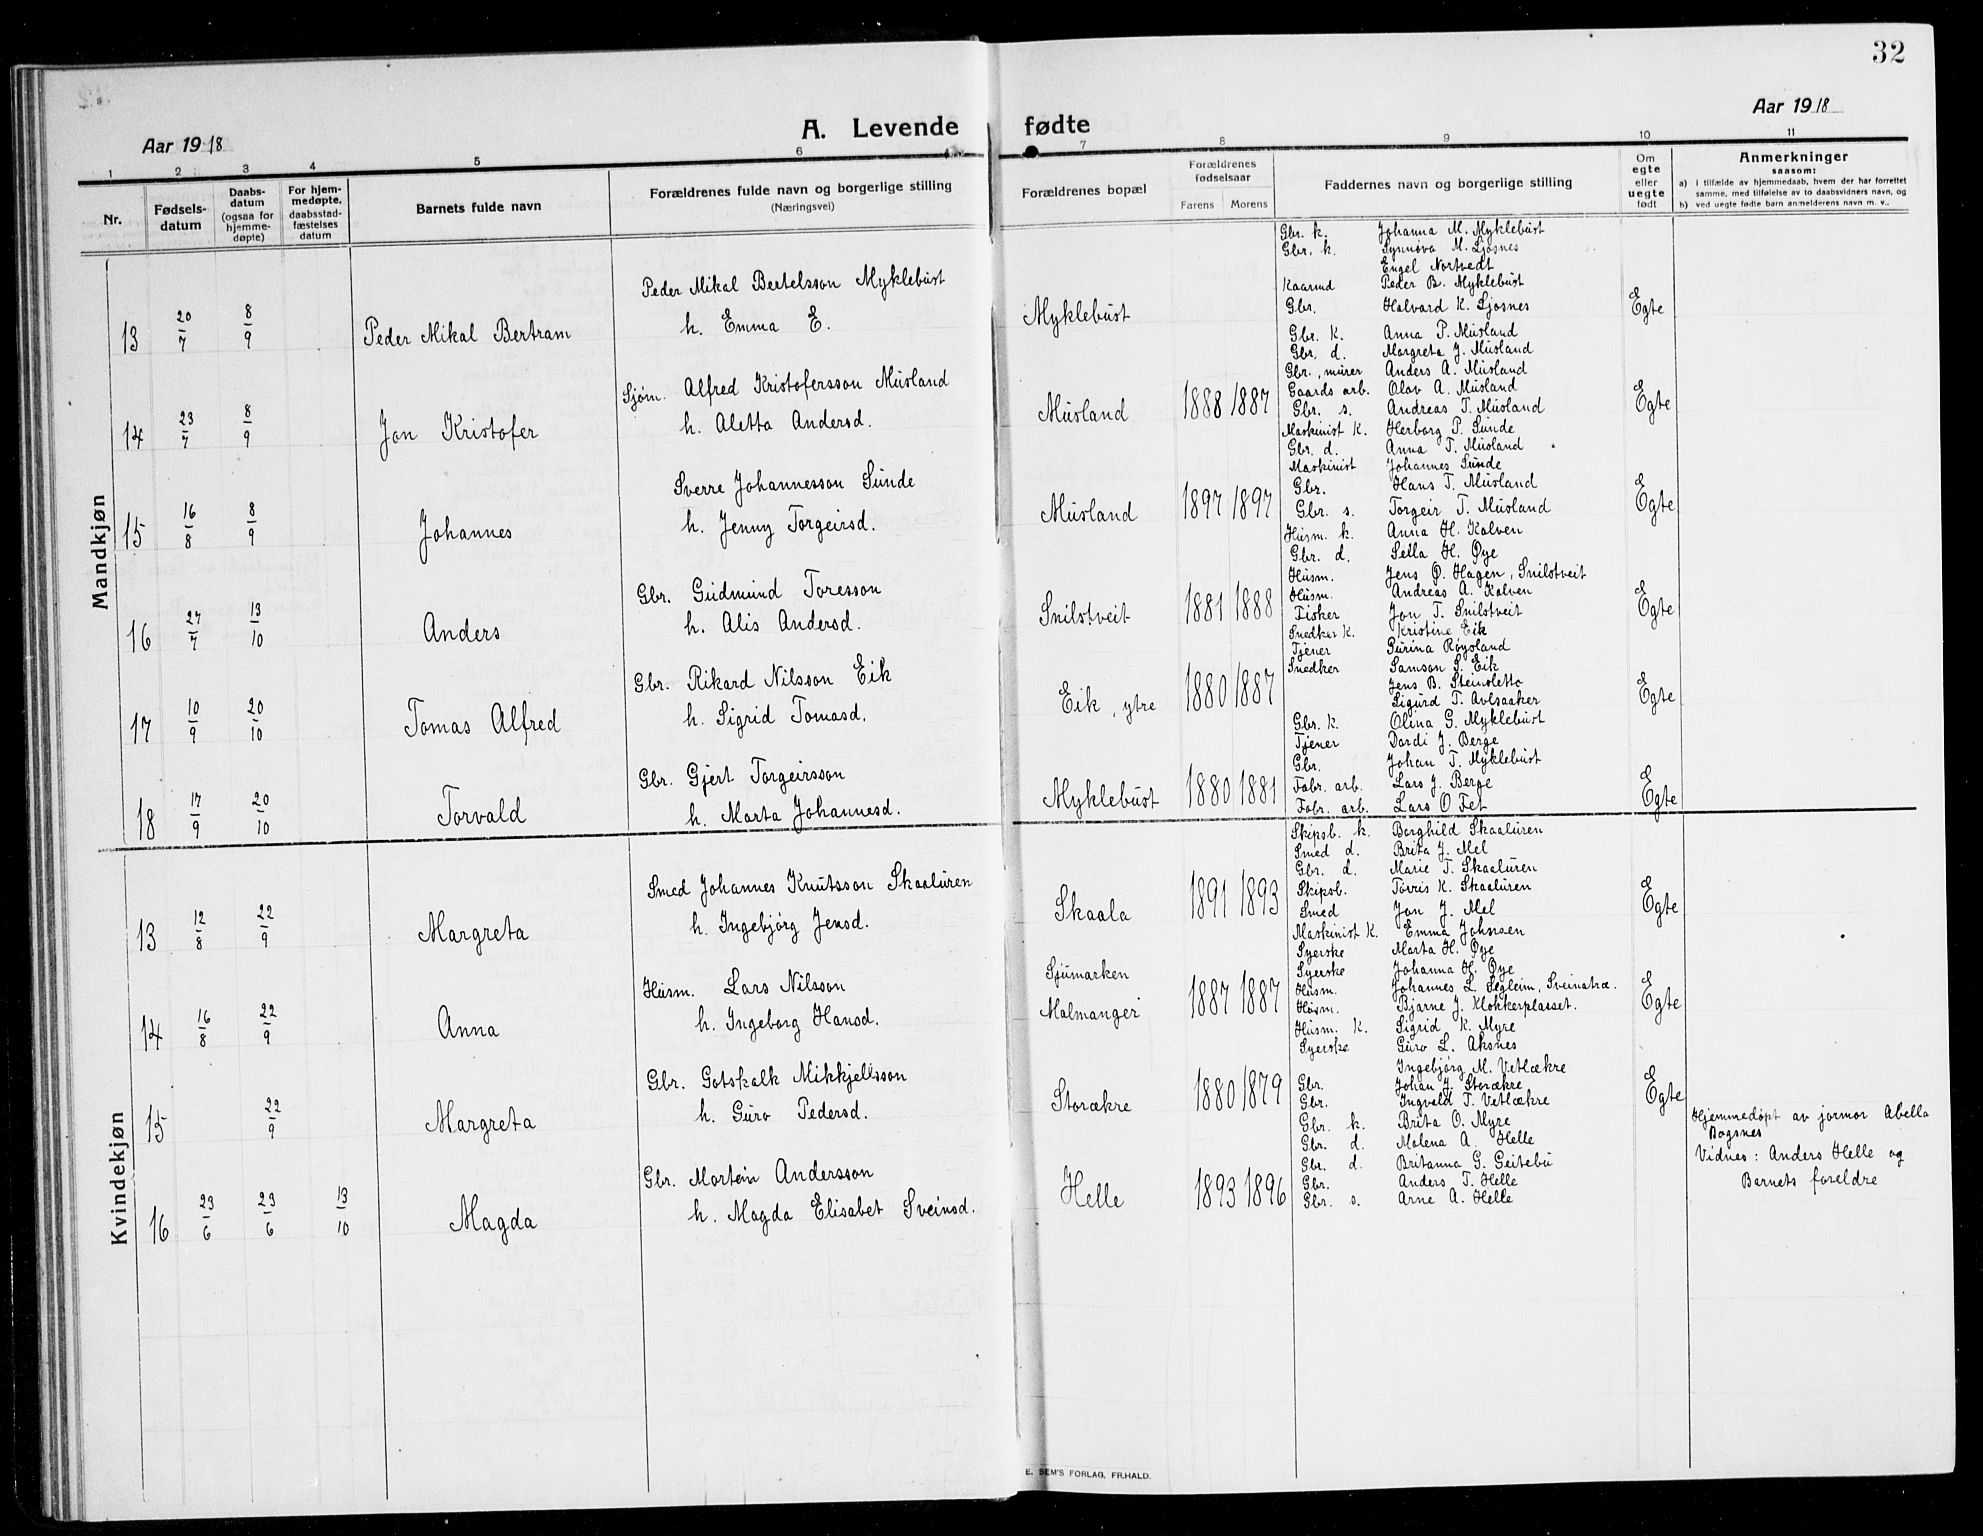 32
Aar 1918
A. Levende fødte
Aar 1918
1 2 3 4 5 6 7 8 9 10 11
Nr.
Fødsels-
datum
Daabs-
datum
(ogsaa for
hjemme-
døpte)
For hjem-
medøpte,
daabsstad-
fæstelses
datum
Barnets fulde navn
Forældrenes fulde navn og borgerlige stilling
(Næringsvei)
Forældrenes bopæl
Forældrenes
fødselsaar
Farens Morens
Faddernes navn og borgerlige stilling
Om
egte
eller
uegte
født
Anmerkninger
saasom:
a) i tilfælde av hjemmedaab, hvem der har forrettet
samme, med tilføielse av to daabsvidners navn, og
b) ved uegte fødte barn anmelderens navn m. v..
Mandkjøn
13 20/7 8/9 Peder Mikal Bertram
Peder Mikal Bertelsson Myklebust
h. Emma E.
Myklebust
Gbr. k. Johanna M. Myklebust
Gbr. k. Synnøva M. Ljosnes
Engel Nortvedt
Kaarmd Peder B. Myklebust
Gbr. Halvard K. Ljosnes
Egte
14 23/7 8/9 Jon Kristofer
Sjøm. Alfred Kristofersson Musland
h. Aletta Andersd.
Musland 1888 1887
Gbr. K. Anna P. Musland
Gbr. d. Margreta J. Musland
Gbr., murer Anders A. Musland
Gaards arb. Olav A. Musland
Gbr. s. Andreas T. Musland
Egte
15 16/8 8/9 Johannes
Sverre Johannesson Sunde
h. Jenny Torgeirsd.
Musland 1897 1897
Maskinist K. Herborg P. Sunde
Gbr. d. Anna T. Musland
Maskinist Johannes Sunde
Gbr. Hans T. Musland
Gbr. s. Torgeir T. Musland
Egte
16 27/7 13/10 Anders
Gbr. Gudmund Toresson
h. Alis Andersd.
Snilstveit 1881 1888
Husm. k. Anna H. Kalven
Gbr. d. Sella H. Øye
Husm. Jens Ø. Hagen, Snilstveit
Husm. Andreas A. Kalven
Fisker Jon T. Snilstveit
Egte
17 10/9 20/10 Tomas Alfred
Gbr. Rikard Nilsson Eik
h. Sigrid Tomasd.
Eik, ytre 1880 1887
Snedker K. Kristine Eik
Tjener Gurina Røysland
Snedker Samson S. Eik
Jens B. Steinsletta
Sigurd T. Avlsaaker
Egte
18 17/9 20/10 Torvald
Gbr. Gjert Torgeirsson
h. Marta Johannesd.
Myklebust 1880 1881
Gbr. K. Olina G. Myklebust
Tjener Dordi J. Berge
Gbr. Johan T. Myklebust
Fabr. arb. Lars J. Berge
Fabr. arb. Lars O Fet
Egte
Kvindekjøn
13 12/8 22/9 Margreta
Smed Johannes Knutsson Skaaluren
h. Ingebjørg Jensd.
Skaala 1891 1893
Skipsb. k. Borghild Skaaluren
Smed d. Brita J. Mel
Gbr. d. Marie T. Skaaluren
Skipsb. Torris K. Skaaluren
Smed Jon J. Mel
Egte
14 16/8 22/9 Anna
Husm. Lars Nilsson
h. Ingeborg Hansd.
Sjumarken
Malmanger 1887 1887
Maskinist K. Emma Johnsen
Syerske Marta H. Øye
Syerske Johanna H. Øye
Husm. Johannes L. Segleim, Sveinatræ.
Husm. Bjarne J. Klokkerplasset.
Egte
15 22/9 Margreta
Gbr. Gotskalk Mikkjellsson
h. Guro Pedersd.
Storækre 1880 1879
Husm. K. Sigrid K. Myre
Syerske Guro L. Aksnes
Ingebjørg M. Vetlækre
Gbr. Johan J. Storækre
Gbr. Ingvald T. Vetlækre
Egte
16 23/6 23/6 13/10 Magda
Gbr. Martein Andersson
h. Magda Elisabet Sveinsd.
Helle 1893 1896
Gbr. k. Brita O. Myre
Gbr. d. Malena A. Helle
Gbr. d. Britanna G. Geitebu
Gbr. Anders T. Helle
Gbr. s. Arne A. Helle
Hjemmedøpt av jormor Abella
Bogsnes
Vidnes: Anders Helle og
Barnets foreldre
E. SEM'S FORLAG, FR.HALD.